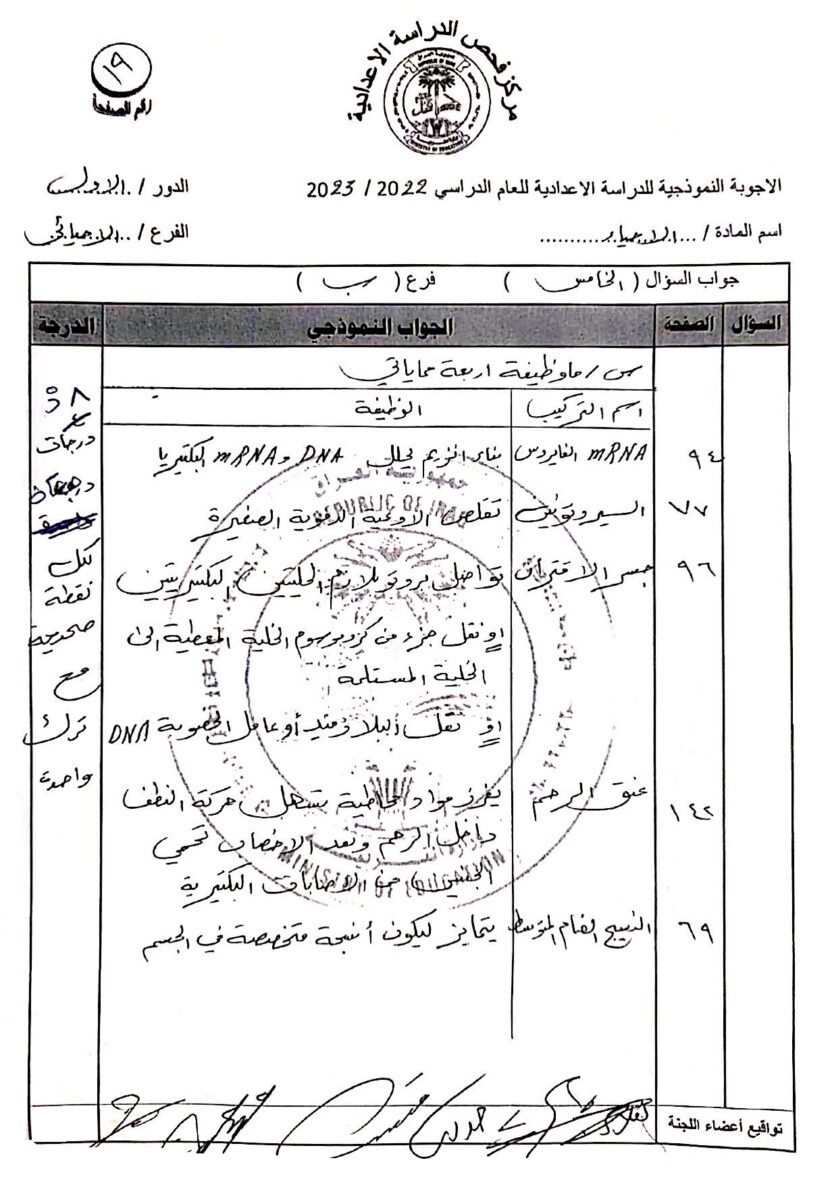 مركز فحص الدراسة الاعدادية
١٩
رقم الصفحة
الاجوبة النموذجية للدراسة الاعدادية للعام الدراسي 2022 / 2023
الدور / الاول
اسم المادة / ... الاحياء ...........
الفرع / .. الاحيائي
جواب السؤال ( الخامس ) فرع ( ب )
السؤال الصفحة الجواب النموذجي الدرجة
س / ما وظيفة اربعة مماياتي
اسم التركيب الوظيفة
٩٤ mRNA الفايروس بناء انزيم يحلل DNA و mRNA البكتيريا
٧٧ السيروتونين تقلص الاوعية الدموية الصغيرة
٩٦ جسر الاقتران تواصل بروتوبلازم الخليتين البكتيريتين
او نقل جزء من كروموسوم الخلية المعطية الى
الخلية المستلمة
او نقل البلازميد أو عامل الخصوبة DNA
١٤٢ عنق الرحم يفرز مواد مخاطية تسهل حركة النطف
داخل الرحم وبعد الاخصاب تحمي
الجنين من الاصابات البكتيرية
٦٩ النسيج الضام المتوسط يتمايز ليكون أنسجة متخصصة في الجسم
٨
درجات
لكل
نقطة
صحيحة
مع
ترك
واحدة
جمهورية العراق
REPUBLIC OF IRAQ
MINISTRY OF EDUCATION
تواقيع أعضاء اللجنة